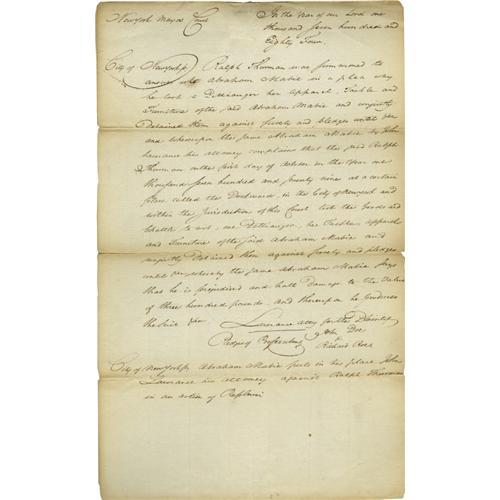 New york Mayors Court
In the Year of our Lord one
thousand Seven hundred and
Eighty Four.
City of New york ss Ralph Thurman was summoned to
answer unto Abraham Mabie in a plea why
he took a Petteauger her Apparel, Tackle and
Furniture of the said Abraham Mabie and unjustly
Detained them against surety and pledges until &c
and whereupon the same Abraham Mabie by John
Laurance his attorney complains that the said Ralph
Thurman on the first day of October in the Year one
thousand seven hundred and seventy nine at a certain
place called the Dockward, in the City of New york and
within the Jurisdiction of this Court took the Goods and
Chattels to wit, one Petteauger, her Tackle, apparel
and Furniture of the said Abraham Mabie and
unjustly Detained them against surety and pledges
until &c whereby the same Abraham Mabie says
that he is prejudiced and hath Damage to the Value
of three hundred pounds, and thereupon he produces
the Suit &c
Laurance atty for the Plaintiff
Pledges of Prosecuting John Doe
Richard Roe
City of New york ss Abraham Mabie puts in his place John
Laurance his attorney against Ralph Thurman
in an action of Replevin